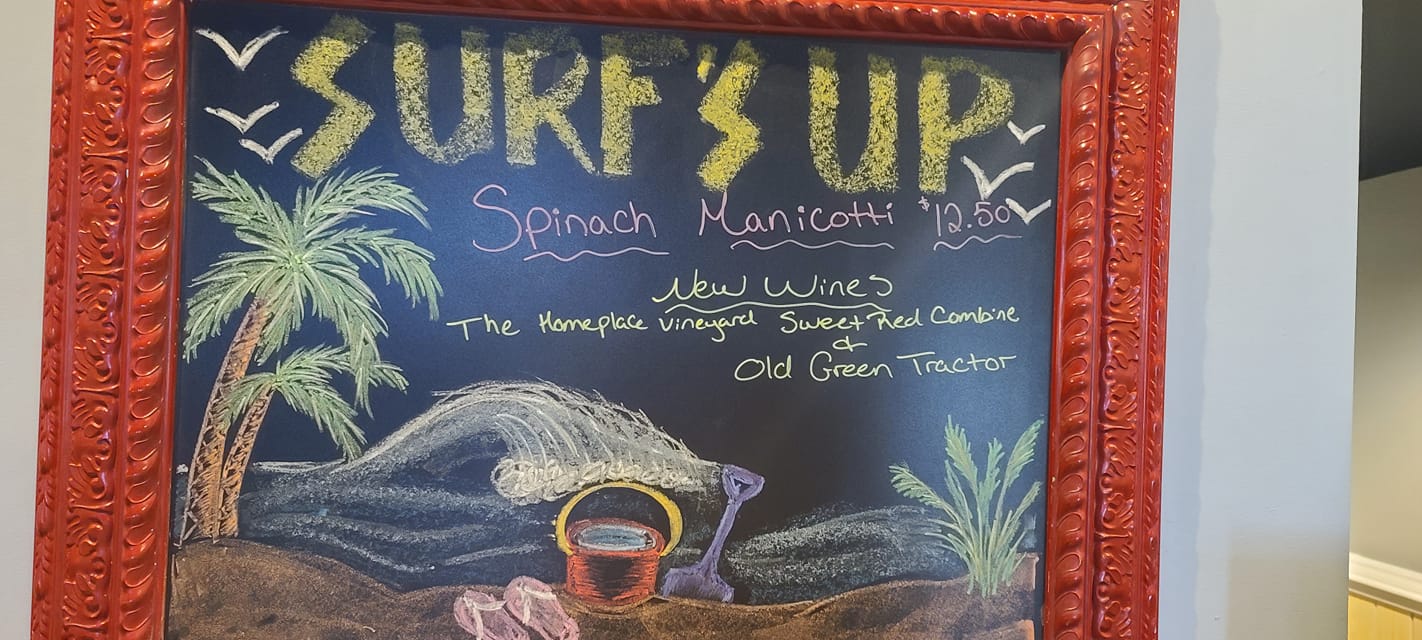 SURF'S UP
Spinach Manicotti $12.50
New Wines
The Homeplace Vineyard Sweet Red Combine
&
Old Green Tractor